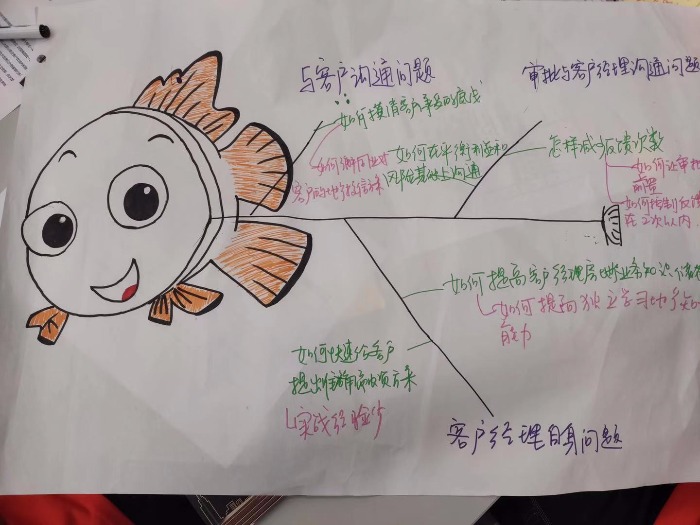 与客户沟通问题
审批与客户经理沟通问题
如何摸清客户承受的底线
如何在平衡利益和
风险基础上沟通
客户的
怎样减少反馈次数
如何让审批
前置
如何控制反馈
在2次以内
如何提高客户经理房地产业务知识储备
如何提高独立学习地产的
能力
如何快速给客户
提出准确融资方案
实战经验少
客户经理自身问题